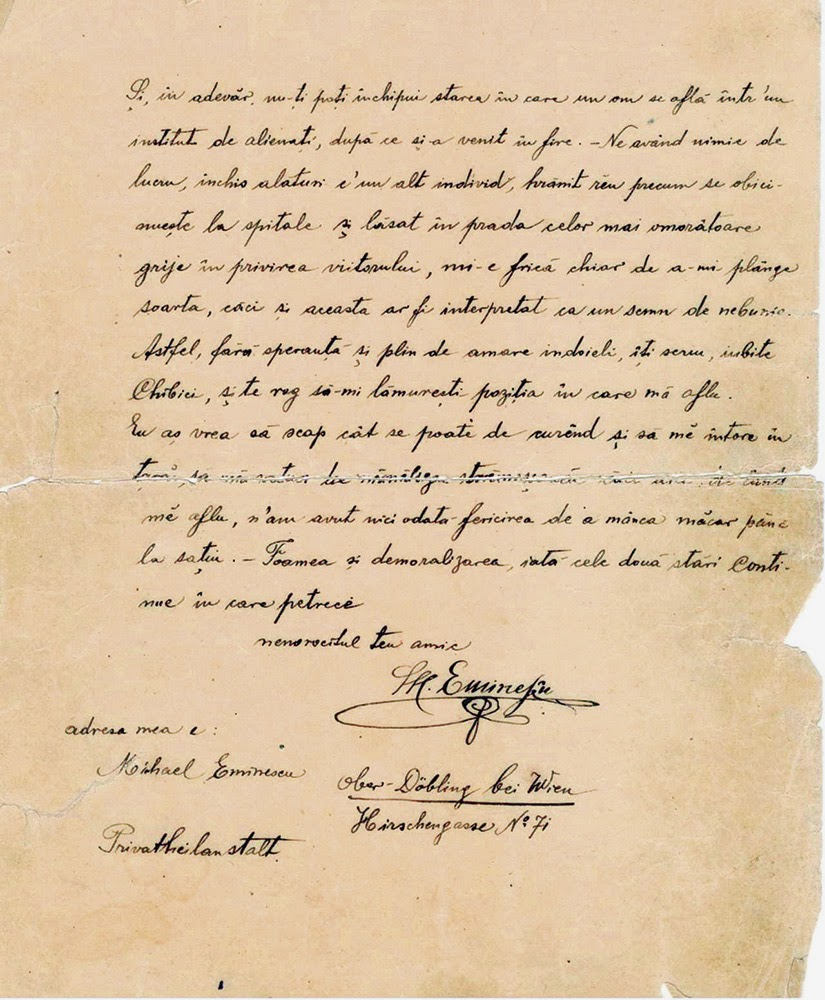 Și, în adevăr, nu-ți poți închipui starea în care un om se află într'un
institut de alienați, după ce și-a venit în fire. - Ne având nimic de
lucru, închis alaturi c'un alt individ, hrănit rĕu precum se obici-
nuește la spitale și lăsat în prada celor mai omorâtoare
grije în privirea viitorului, mi-e frică chiar de a-mi plânge
soarta, căci și aceasta ar fi interpretat ca un semn de nebunie.
Astfel, fără speranță și plin de amare indoieli, îți scriu, iubite
Chibici, și te rog să-mi lămurești poziția în care mă aflu.
Eu aș vrea să scap cât se poate de curĕnd și să mĕ întorc în
țară, să mă satur de mămăliga strămoșească căci aici, de când
mĕ aflu, n'am avut nici odată fericirea de a mânca măcar până
la sațiu. - Foamea și demoralizarea, iată cele două stări conti-
nue în care petrece
nenorocitul tĕu amic
M. Eminescu
adresa mea e:
Michael Eminescu
Ober-Döbling bei Wien
Hirschengasse No 71
Privatheilanstalt.